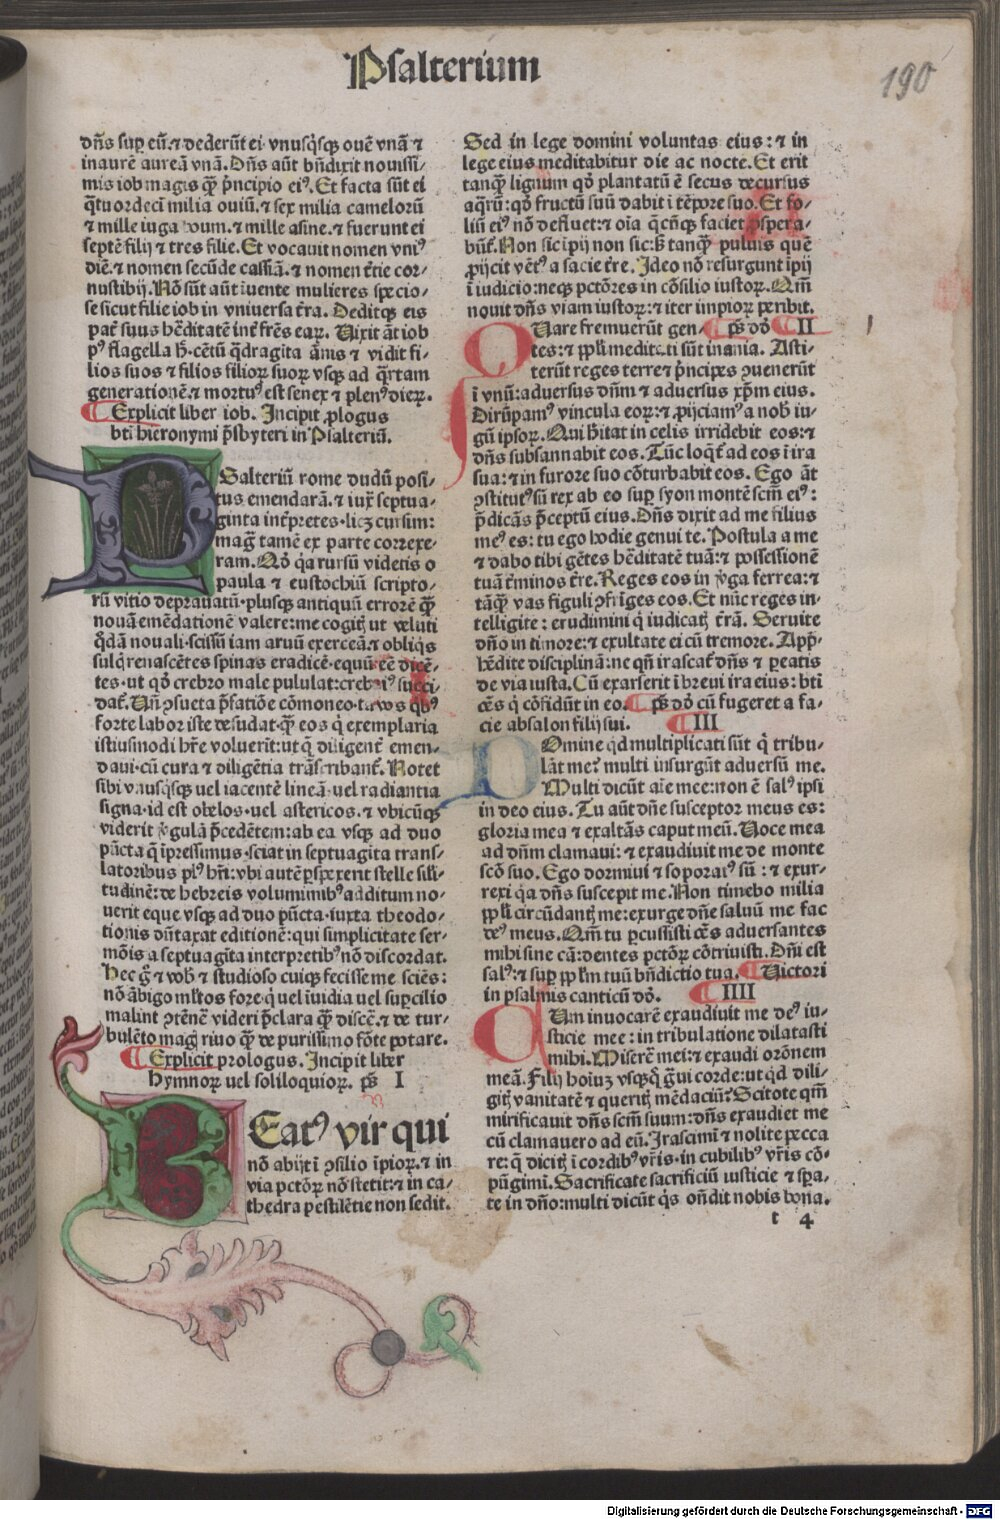 Psalterium
190
dn̄s sup eū.⁊ dederūt ei vnusq̄sq̄ ouē vnā ⁊
inaurē aureā vnā. Dn̄s aūt bn̄dixit nouissi/
mis iob magis q̄ꝫ p̄ncipio eiꝰ. Et facta sūt ei
q̄tuordecī milia ouiū.⁊ sex milia camelorū
⁊ mille iuga boum.⁊ mille asine.⁊ fuerunt ei
septē filij ⁊ tres filie. Et vocauit nomen vniꝰ
diē.⁊ nomen secūde cassiā.⁊ nomen t̄rie cor/
nustibij. Nō sūt aūt iuente mulieres specio/
se sicut filie iob in vniuersa t̄ra. Deditqꝫ eis
pat̄ suus hēditatē int̄ frēs eaꝝ. Uixit āt iob
pꝰ flagella h̄.cētū q̄dragita ānis ⁊ vidit fi/
lios suos ⁊ filios filioꝝ suoꝝ vsqꝫ ad q̄rtam
generationē.⁊ mortuꝰ est senex ⁊ plenꝰ dieꝝ.
Explicit liber iob. Incipit ꝓlogus
bti hieronymi p̄sbyteri in Psalteriū.
PSalteriū rome dudū posi/
tus emendarā.⁊ iuxͭ septua/
ginta int̄pretes.licꝫ cursim:
maḡ tamē ex parte correxe/
ram. Qō qꝛ rursū videtis o
paula ⁊ eustochiū scripto/
rū vitio deprauatū.plusqꝫ antiquū errorē q̄ꝫ
nouā emēdationē valere:me cogitꝭ ut veluti
q̄dā nouali.scissū iam aruū exerceā.⁊ obliqs
sulqͥ renascētes spinas eradicē.equū eē dicē/
tes.ut qō crebro male pululat:crebriꝰ succi/
dat̄. Uñ ꝯsueta p̄fatiōe cōmoneo.t. vos qbꝰ
forte labor iste desudat.q̄ꝫ eos qͥ exemplaria
istiusmodi hr̄e voluerit:ut q̄ diligent̄ emen/
daui.cū cura ⁊ diligētia trāscribant̄. Notet
sibi vnusq̄sqꝫ uel iacentē lineā.uel radiantia
signa.id est obelos.uel astericos.⁊ vbicūqꝫ
viderit v̄gulā p̄cedētem:ab ea vsqꝫ ad duo
pūcta q̄ īpressimus.sciat in septuagīta trans/
latoribus plꝰ hr̄i:vbi autē pspexent stelle sili/
tudinē:de hebreis voluminibꝰ additum no/
uerit eque vsqꝫ ad duo pūcta.iuxta theodo/
tionis dūtaxat editionē:qui simplicitate ser/
mōis a septuagīta interpretibꝰ nō discordat.
Hec g̊ ⁊ vob̄ ⁊ studioso cuiqꝫ fecisse me sciēs:
nō ābigo ml̄tos fore.qͥ uel īuidia uel supcilio
malint ꝯtēnē videri p̄clara q̄ꝫ discē.⁊ de tur/
bulēto maḡ riuo q̄ꝫ de purissimo fōte potare.
Explicit prologus. Incipit liber
hymnoꝝ uel soliloquioꝝ. ps̄ I
BEatꝰ vir qui
nō abijt ī ꝯsilio īpioꝝ.⁊ in
via pctōꝝ nō stetit:⁊ in ca/
thedra pestilētie non sedit.
Sed in lege domini voluntas eius:⁊ in
lege eius meditabitur die ac nocte. Et erit
tanq̄ꝫ lignum qō plantatū ē secus decursus
aqͣrū:qō fructū suū dabit ī tēpore suo. Et fo/
liū eiꝰ nō defluet:⁊ oīa q̄cūqꝫ faciet ꝓspera/
būt̄. Non sic īpij non sic:sꝫ tanq̄ꝫ puluis quē
ꝓijcit vētꝰ a facie t̄re. Ideo nō resurgunt īpij
ī iudicio:neqꝫ pctōres in cōsilio iustoꝝ. Qm̄
nouit dn̄s viam iustoꝝ:⁊ iter impioꝝ peribit.
QUare fremuerūt gen/ ps̄ dō II
tes:⁊ ppl̄i meditati sūt inania. Asti/
terūt reges terre ⁊ p̄ncipes ꝯuenerūt
ī vnū:aduersus dn̄m ⁊ aduersus xp̄m eius.
Dirūpamꝰ vincula eoꝝ:⁊ ꝓijciamꝰ a nob̄ iu/
gū ipsoꝝ. Qui h̄itat in celis irridebit eos:⁊
dn̄s subsannabit eos. Tūc loqͭ ad eos ī ira
sua:⁊ in furore suo cōturbabit eos. Ego āt
ꝯstitutꝰ sū rex ab eo sup syon montē scm̄ eiꝰ:
p̄dicās p̄ceptū eius. Dn̄s dixit ad me filius
meꝰ es: tu ego hodie genui te. Postula a me
⁊ dabo tibi gētes hēditatē tuā:⁊ possessionē
tuā t̄minos t̄re. Reges eos in v̄ga ferrea:⁊
tāq̄ꝫ vas figuli ꝯfrīges eos. Et nūc reges in/
telligite: erudimini qͥ iudicatꝭ t̄rā. Seruite
dn̄o in timore:⁊ exultate ei cū tremore. App̄/
hēdite disciplinā:ne qn̄ irascat̄ dn̄s ⁊ pereatis
de via iusta. Cū exarserit ī breui ira eius: bti
oēs qͥ cōfidūt in eo. ps̄ dō cū fugeret a fa/
cie absalon filij sui. III
DOmine qd multiplicati sūt qͥ tribu/
lāt me? multi insurgūt aduersū me.
Multi dicūt aīe mee:non ē salꝰ ipsi
in deo eius. Tu aūt dn̄e susceptor meus es:
gloria mea ⁊ exaltās caput meū. Uoce mea
ad dn̄m clamaui:⁊ exaudiuit me de monte
scō suo. Ego dormiui ⁊ soporatꝰ sū:⁊ exur/
rexi qꝛ dn̄s suscepit me. Non timebo milia
ppl̄i circūdantꝭ me:exurge dn̄e saluū me fac
deꝰ meus. Qm̄ tu percussisti oēs aduersantes
mihi sine cā:dentes pctōꝝ cōtriuisti. Dn̄i est
salꝰ:⁊ sup ppl̄m tuū bn̄dictio tua. Uictori
in psalmis canticū dō. IIII
CUm inuocarē exaudiuit me deꝰ iu/
sticie mee: in tribulatione dilatasti
mihi. Miserē mei:⁊ exaudi orōnem
meā. Filij hoīuꝫ vsqꝫq̄ g̊ui corde:ut qd dili/
gitꝭ vanitatē ⁊ queritꝭ mēdaciū? Scitote qm̄
mirificauit dn̄s scm̄ suum:dn̄s exaudiet me
cū clamauero ad eū. Irascimī ⁊ nolite pecca
re:q̄ dicitꝭ ī cordibꝰ vr̄is.in cubilibꝰ vr̄is cō/
pūgimi. Sacrificate sacrificiū iusticie ⁊ spa/
te in dn̄o:multi dicūt qͥs on̄dit nobis bona.
t 4
Digitalisierung gefördert durch die Deutsche Forschungsgemeinschaft - DFG